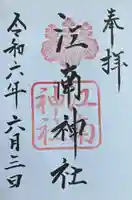 奉拝
江南神社
江南神社
令和六年六月三日